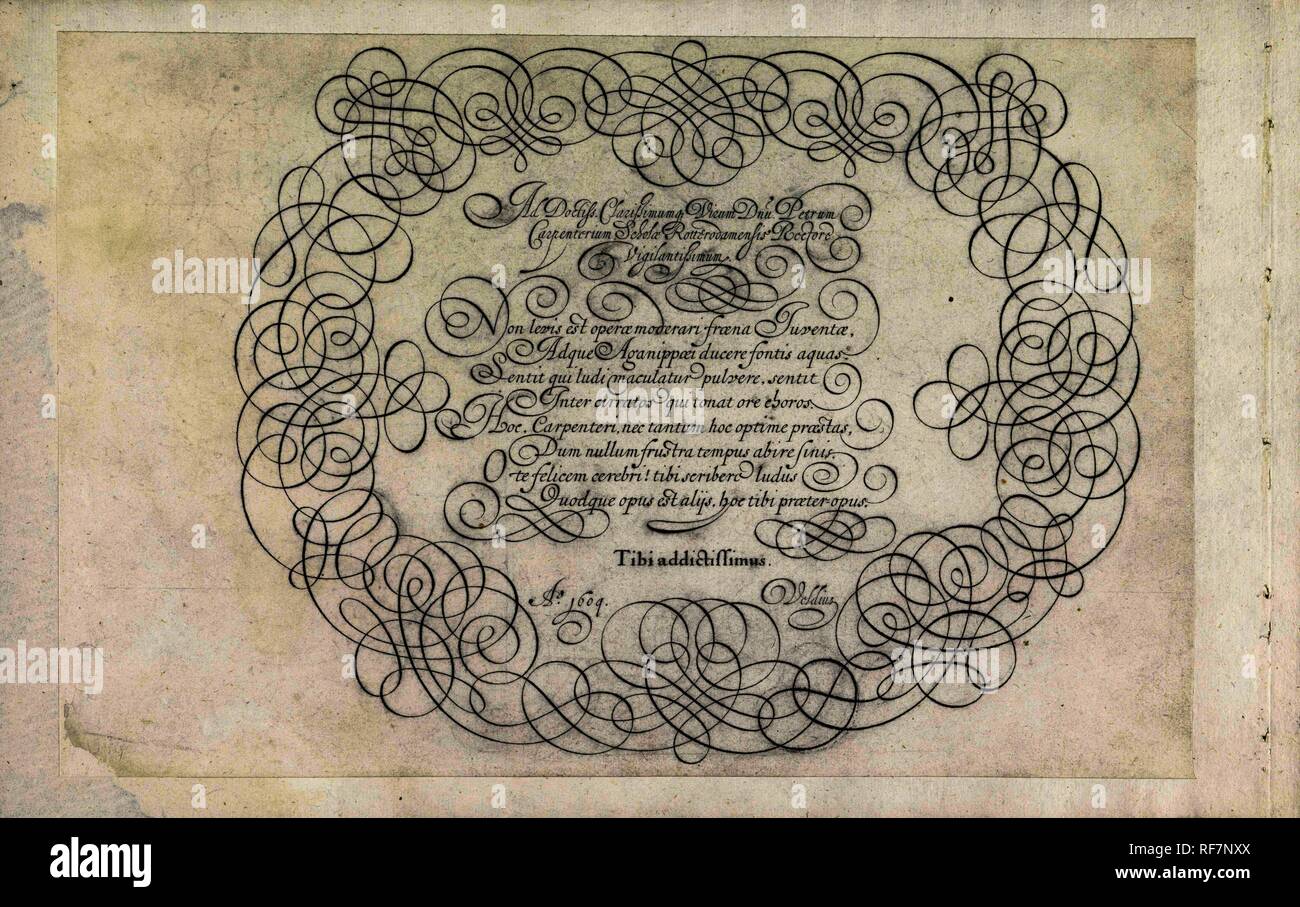 Ad Doctiss. Clarissimumq, Virum Dnū. Petrum
Carpenterium Scholæ Rotterodamensis Rectorē
Vigilantissimum.
Non levis est operæ moderari fræna Iuventæ,
Adque Aganippæi ducere fontis aquas:
Sentit qui ludi maculatur pulvere, sentit
Inter cirratos qui tonat ore choros.
Hoc, Carpenteri, nec tantum hoc optime præstas,
Dum nullum frustra tempus abire sinis.
O te felicem cerebri! tibi scribere ludus
Quodque opus est alijs, hoc tibi præter opus.
Tibi addictissimus.
Aº. 1604. Veldius
a alamy stock photo
RF7NXX
www.alamy.com